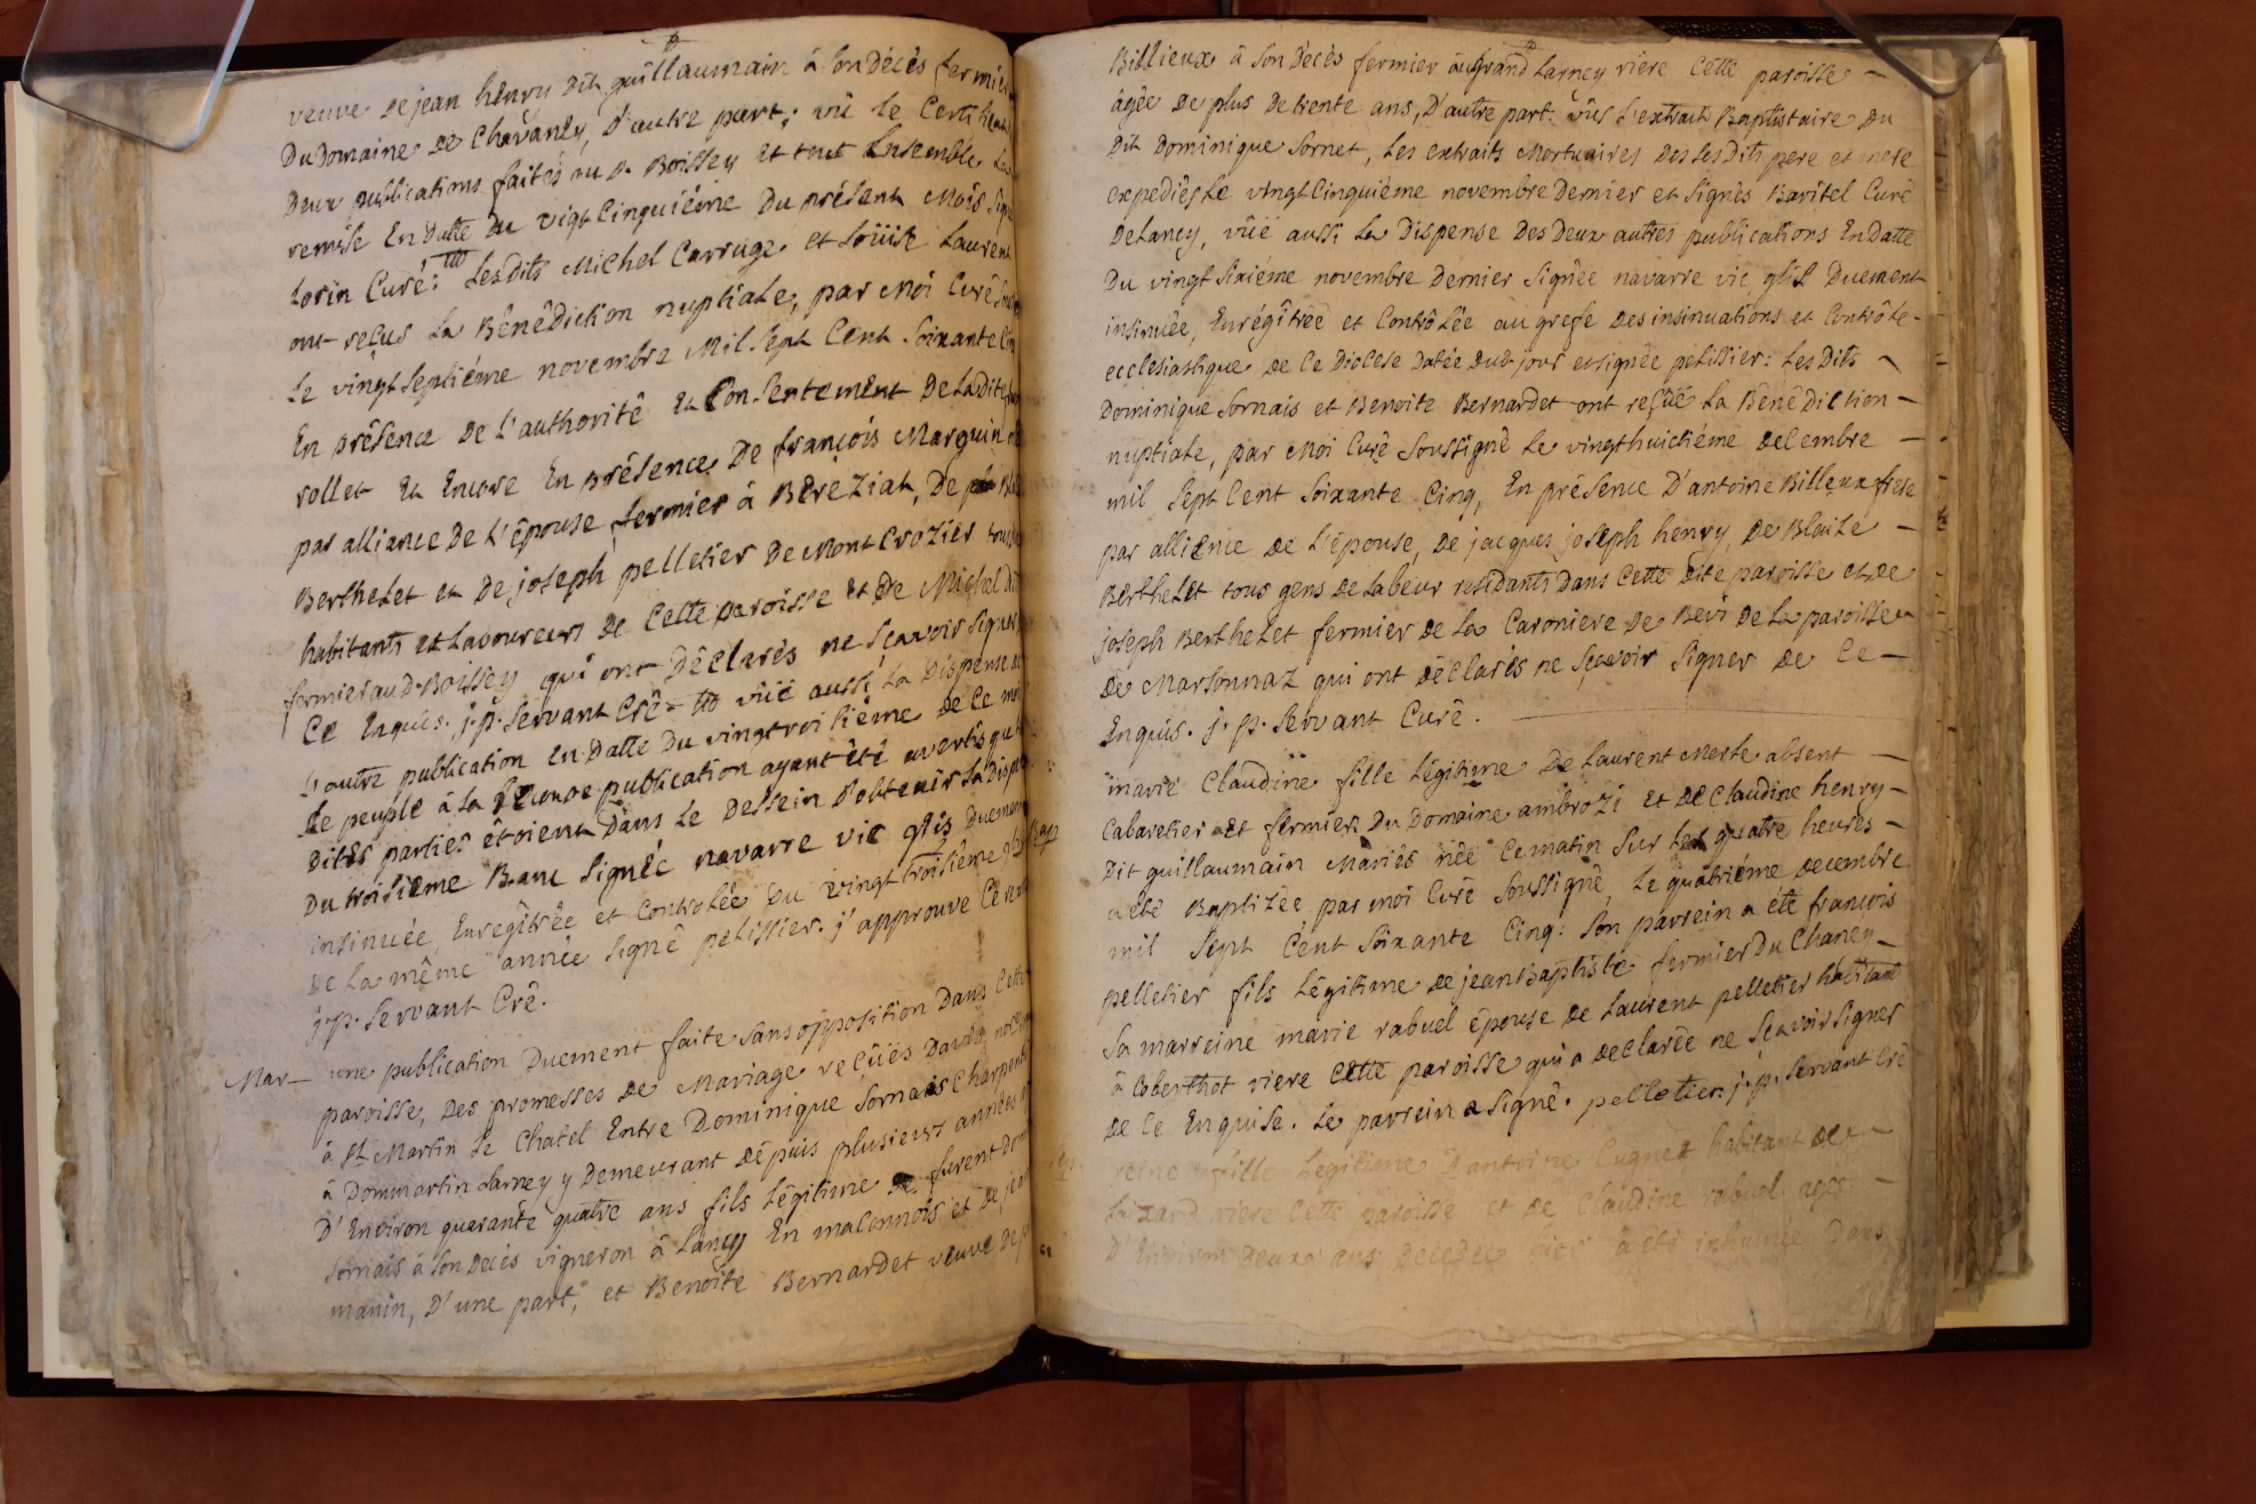 veuve de jean henry dit guillaumain â son dècês fermier
du Domaine de Chavanes, d'autre part; vû le Certificat
deux publications faites au d. Boissey et tout Ensemble La
remise En datte du vigt Cinquiéme du présent Mois signé
Lorin Curé: Lesdits Michel Carruge et Loüise Laurent
ont reçus La Bênêdiction nuptiale, par Moi Curê
Le vingt septiéme novembre Mil sept Cent soixante Cinq
En présence de l'authoritê et Consentement de Ladite
rollet et Encore En présence de françois Marguin
par alliance de l'épouse fermier à Bereziat, de
Berthelet et de joseph pelletier de Mont Crozier tous
habitants et Laboureurs de Cette paroisse et de Michel
fermier aud. Boissey qui ont dêclarés ne sçavoir signer
Ce Enquis. j. p. servant Crê = vûë aussi La dispense de
L'autre publication en datte du vingtroisiéme de Ce mois
Le peuple â la seconde publication ayant êtê avertis que
dites parties êtoient dans Le dessein d'obtenir La dispense
du troisieme Banc signée navarre vic glis duement
insinuée, Enregîtrêe et Controlée du vingt troisiême
de La même année signé pelissier. j'approuve
j. p. servant Crê.
Mar— une publication duement faite sans opposition dans Cette
paroisse, des promesses de Mariage reçûës
â St Martin Le Chatel Entre Dominique Sornais Charpentier
â Dommartin Larney y demeurant dêpuis plusieurs années
D'Environ quarante quatre ans fils Légitime de furent
Sornais â son decès vigneron â Lancy En maconnois et de
manin, d'une part, et Benoîte Bernardet veuve de
Billieux â son dècès fermier au grand Larney riere Cette paroisse —
âgée de plus de trente ans, d'autre part. vûs l'extrait Baptistaire du
dit Dominique Sornet, Les extraits Mortuaires des Lesdits pere et mere
expediés Le vingt Cinquiéme novembre dernier et signés Baritel Curé
de Lancy, vûë aussi La dispense des deux autres publications En datte
du vingt sixiéme novembre dernier signée navarre vic glis duement
insinuée, Enrégîtrêe et Contrôlée au grefe des insinuations et Contrôle -
ecclesiastique de Ce diocese datée dud. jour et signée pelissier: Les dits -
Dominique Sornais et Benoite Bernardet ont reçûë La Bênêdiction -
nuptiale, par Moi Curê soussignê Le vingt huictiéme decembre —
mil sept Cent soixante Cinq, En présence d'antoine Billeux frere
par allience de l'épouse, de jacques joseph henry, de Blaize —
Berthelet tous gens de Labeur residants dans Cette dite paroisse et de
joseph Berthelet fermier de La Caroniere de Bevi de La paroisse
de Marsonnaz qui ont dêclarés ne sçavoir signer de Ce —
Enquis. j. p. servant Curê.
marie Claudine fille Légitime de Laurent Merle absent —
Cabaretier et fermier du Domaine ambrozi et de Claudine henry -
dit guillaumain Mariés née Ce matin sur Les quatre heures -
a êtê Baptizée par moi Curê soussignê, Le quatriéme decembre
mil sept Cent soixante Cinq: son parrein a été françois
pelletier fils Légitime de jean Baptiste fermier du Chaney -
sa marreine marie rabuel êpouse de Laurent pelletier habitant
â Coberthot riere Cette paroisse qui a declarêe ne sçavoir signer
de Ce Enquise. Le parrein a signê. pelletier. j. p. servant Crê
reine fille Legitime d'antoine Cugnet habitant de —
riere Cette paroisse et de Claudine rabuel agée —
d'Environ deux ans decedée hier a été inhumée dans